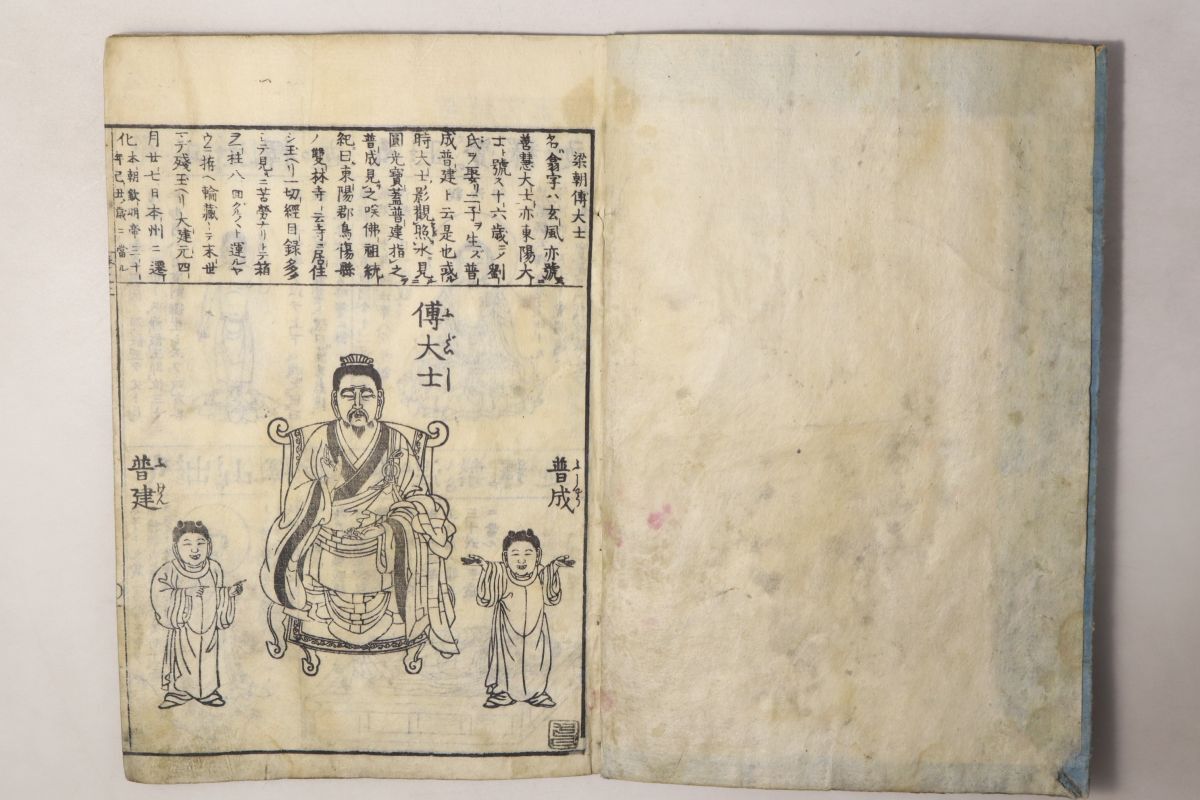 梁朝傅大士
名翕字ハ玄風亦號
善慧大士亦東陽大
士ト號ス十六歳ニシテ劉
氏ヲ娶リ二子ヲ生ズ普
成普建ト云是也或
時大士影觀照水見
圓光寳蓋普建指之
普成見之咲佛祖統
紀曰東陽郡烏傷縣
ノ雙林寺ト云寺ニ居住
シ玉ヘリ一切經目録多
シテ見ルニ苦勞ナリトテ箱
ヲ柱八
ウニ拵ヘ輪藏トシテ末世
ニテ殘玉ヘリ大建元四
月廿七日本州ニ遷
化本朝欽明帝三十
年己丑ノ歳ニ當ル
傅大士
ふだいし
普成
普建
ふけん